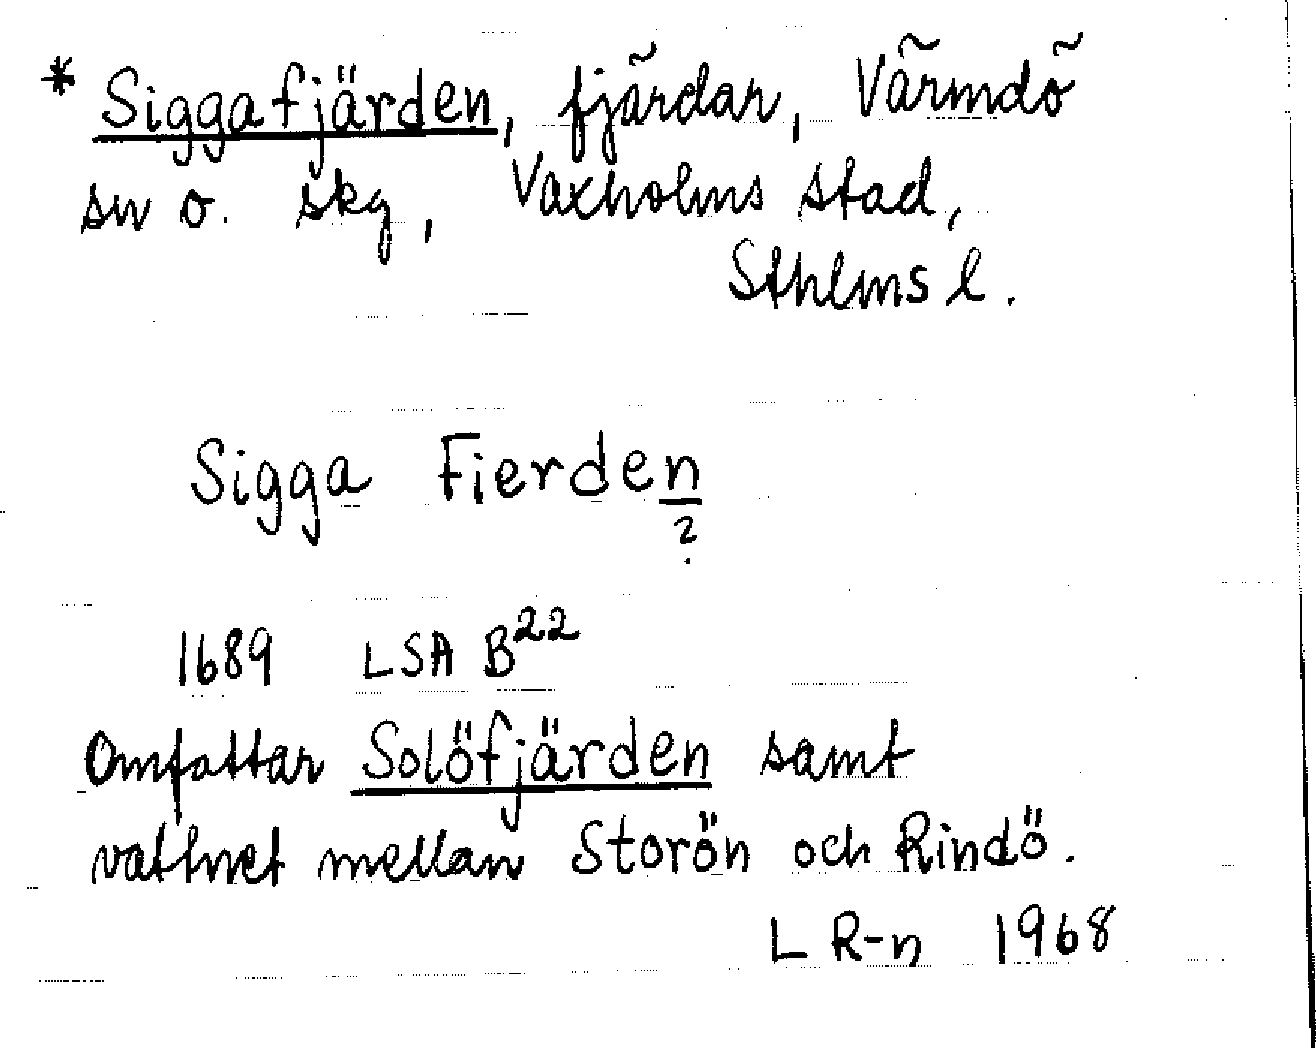 * Siggafjärden, fjärdar, Värmdö
sn o. skg, Vaxholms stad,
Sthlms l.
Sigga Fierden
?
1689 LSA B22
Omfattar Solöfjärden samt
vattnet mellan Storön och Rindö.
L R-n 1968